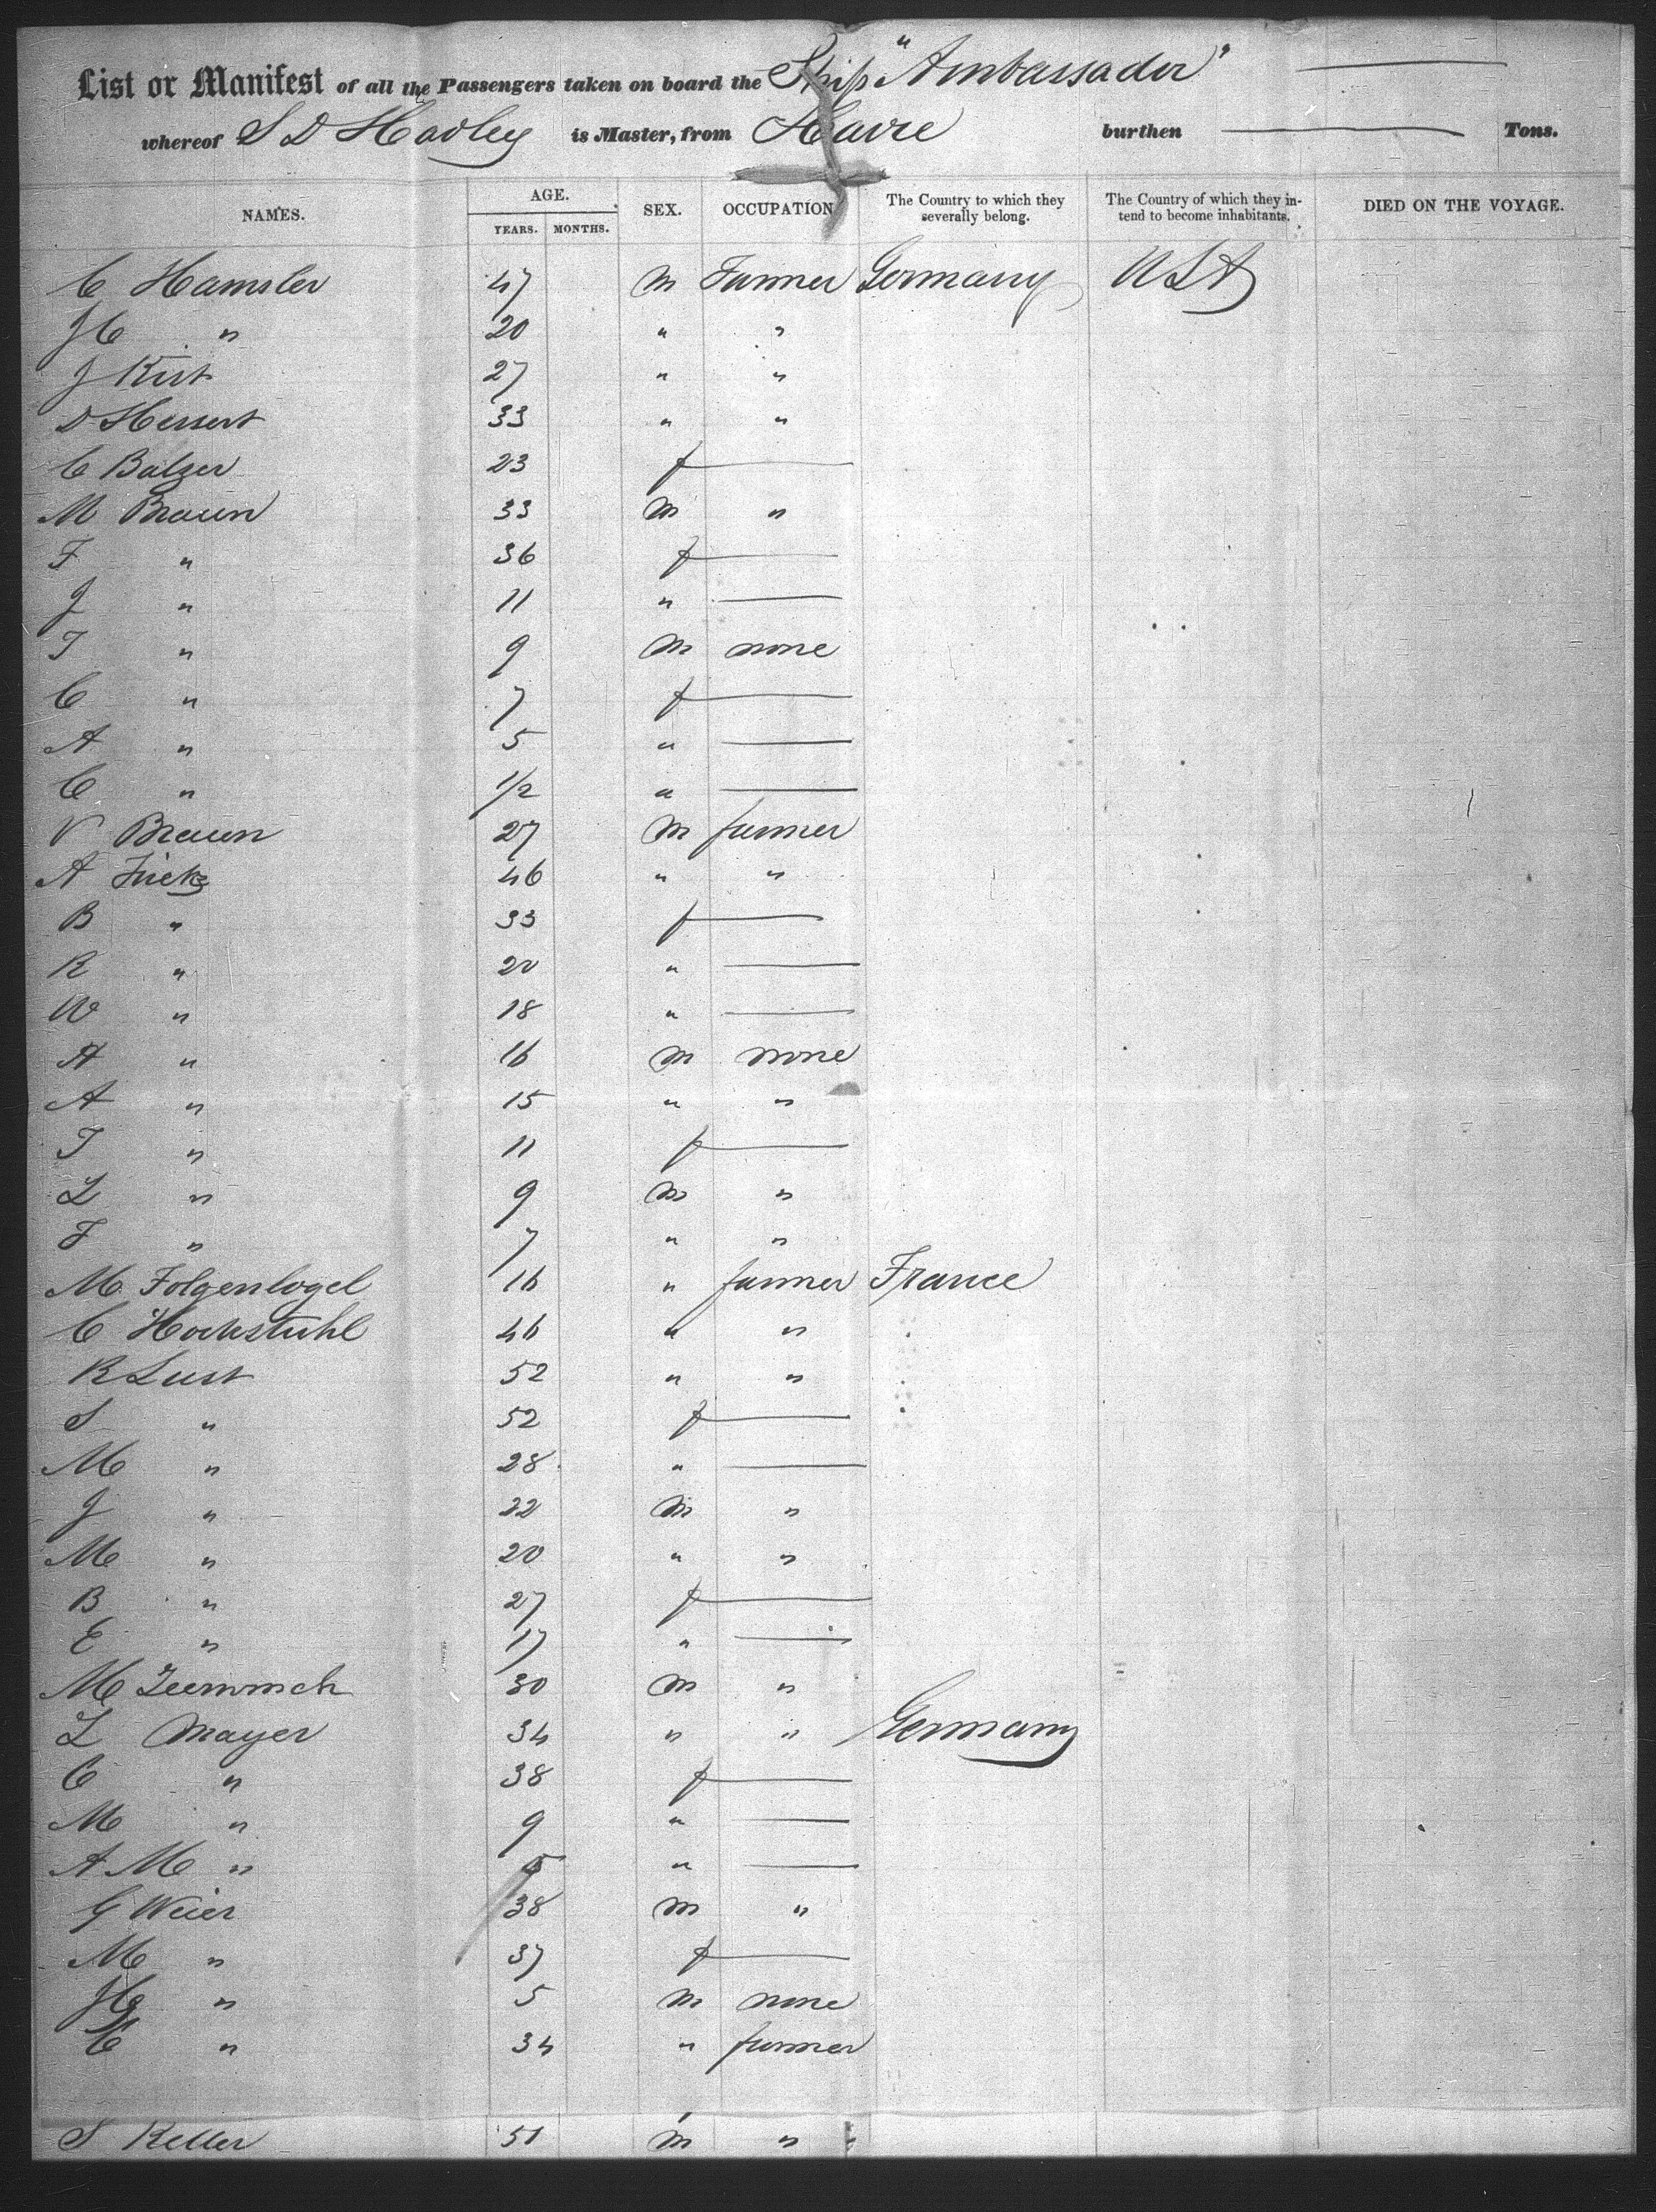 List or Manifest of all the Passengers taken on board the Ship "Ambassador"
whereof S D Hadley is Master, from Havre burthen Tons.
NAMES. AGE. YEARS. MONTHS. SEX. OCCUPATION The Country to which they severally belong. The Country of which they intend to become inhabitants. DIED ON THE VOYAGE.
C Hamsler 47 m Farmer Germany USA
H " 20 " "
J Kist 27 " "
D Hessert 33 " "
C Balzer 23 f
M Braun 33 m "
F " 36 f
J " 11 "
T " 9 m none
C " 7 f
A " 5 "
C " 1/2 "
V Braun 27 m farmer
A Frick 46 " "
B " 33 f
R " 20 "
W " 18 "
A " 16 m none
A " 15 " "
T " 11 f
L " 9 m "
F " 7 " "
M Folgenlogel 16 " farmer France
C Hochstuhl 46 " "
R Lust 52 " "
S " 52 f
M " 28 "
J " 22 m "
M " 20 " "
B " 27 f
E " 17 "
M 30 m "
L Mayer 34 " " Germany
C " 38 f
M " 9 "
A M " 5 "
G Weier 38 m "
M " 37 f
" 5 m none
C " 34 " farmer
S Keller 51 m "